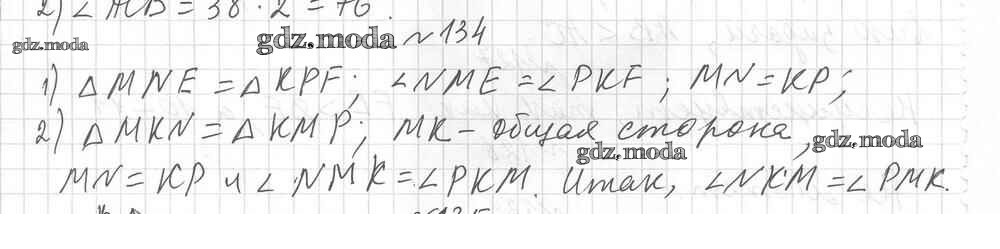 2) ∠ACB = 38 · 2 = 76.
gdz.moda
gdz.moda
№134
1) △MNE = △KPF; ∠NME = ∠PKF; MN = KP;
2) △MKN = △KMP; MK - общая сторона,
gdz.moda
gdz.moda
MN = KP и ∠NMK = ∠PKM. Итак, ∠NKM = ∠PMK.